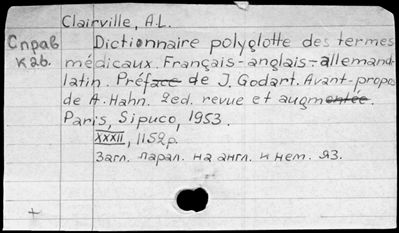 Clairville, A.L.
Справ Dictionnaire polyglotte des termes
каб. médicaux. Français-anglais-allemand-
latin. Préface de J. Godart. Avant-propos
de A. Hahn. 2ed. revue et augmentée.
Paris, Sipuco, 1953.
XXXII, 1152p.
Загл. парал. на англ. и нем. яз.
+